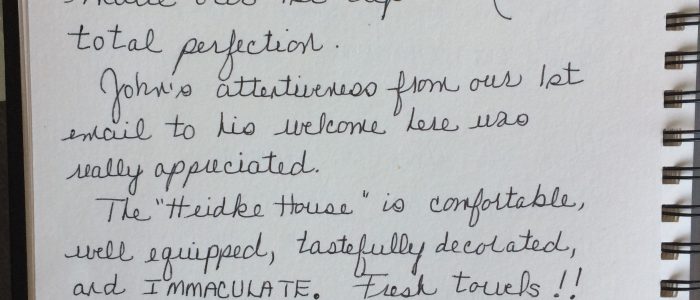 total perfection.
John's attentiveness from our 1st
email to his welcome here was
really appreciated.
The "Heidke House" is comfortable,
well equipped, tastefully decorated,
and IMMACULATE. Fresh towels!!